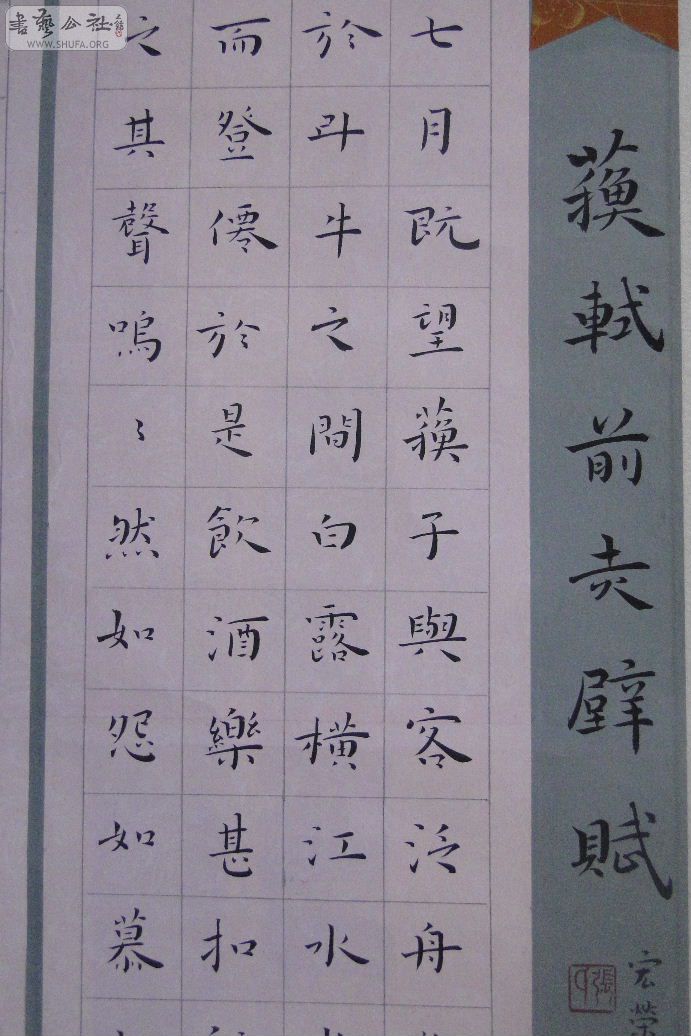 蘇軾前赤壁賦
宏榮
七月既望蘇子與客泛舟
於斗牛之間白露橫江水
而登僊於是飲酒樂甚扣
之其聲嗚〻然如怨如慕
書藝公社
WWW.SHUFA.ORG